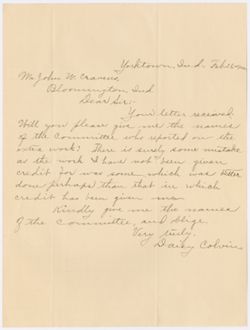 Yorktown, Ind. Feb.
Mr. John W. Cravens,
Bloomington Ind
Dear Sir:-
Your letter received.
Will you please give me the names
of the Committee who reported on the
extra work? There is surely some mistake
as the work I have not been given
credit for was some which was better
done perhaps than that in which
credit has been given me.
Kindly give me the names
of the Committee, and oblige.
Very truly,
Daisy Colvin